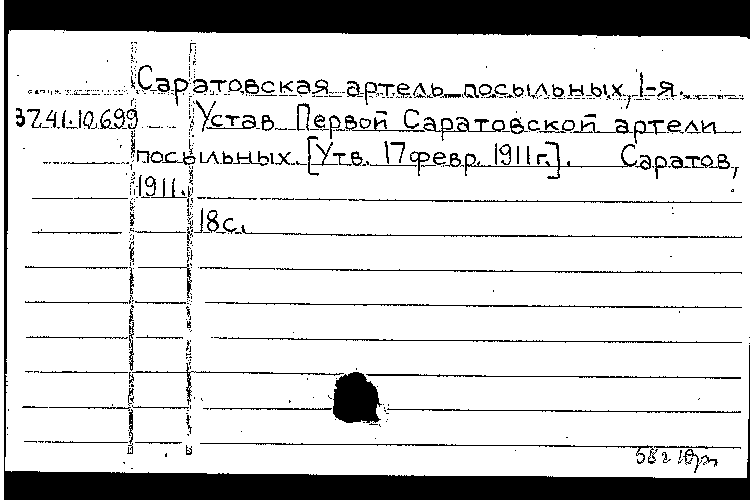 Саратовская артель посыльных, 1-я.
37.41.10.699 Устав Первой Саратовской артели
посыльных. [Утв. 17 февр. 1911 г.]. Саратов,
1911.
18 с.